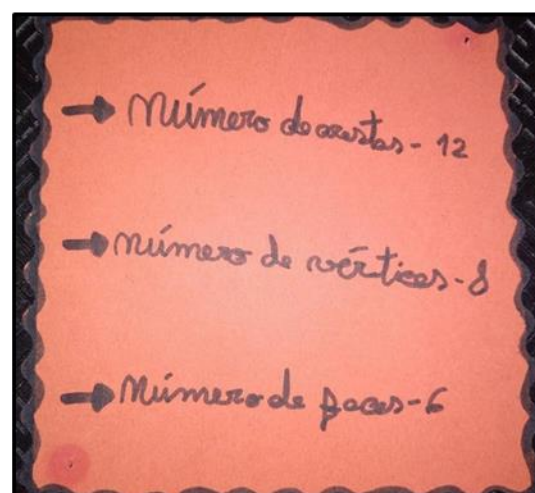 → Número de arestas - 12
→ número de vértices - 8
→ Número de faces - 6